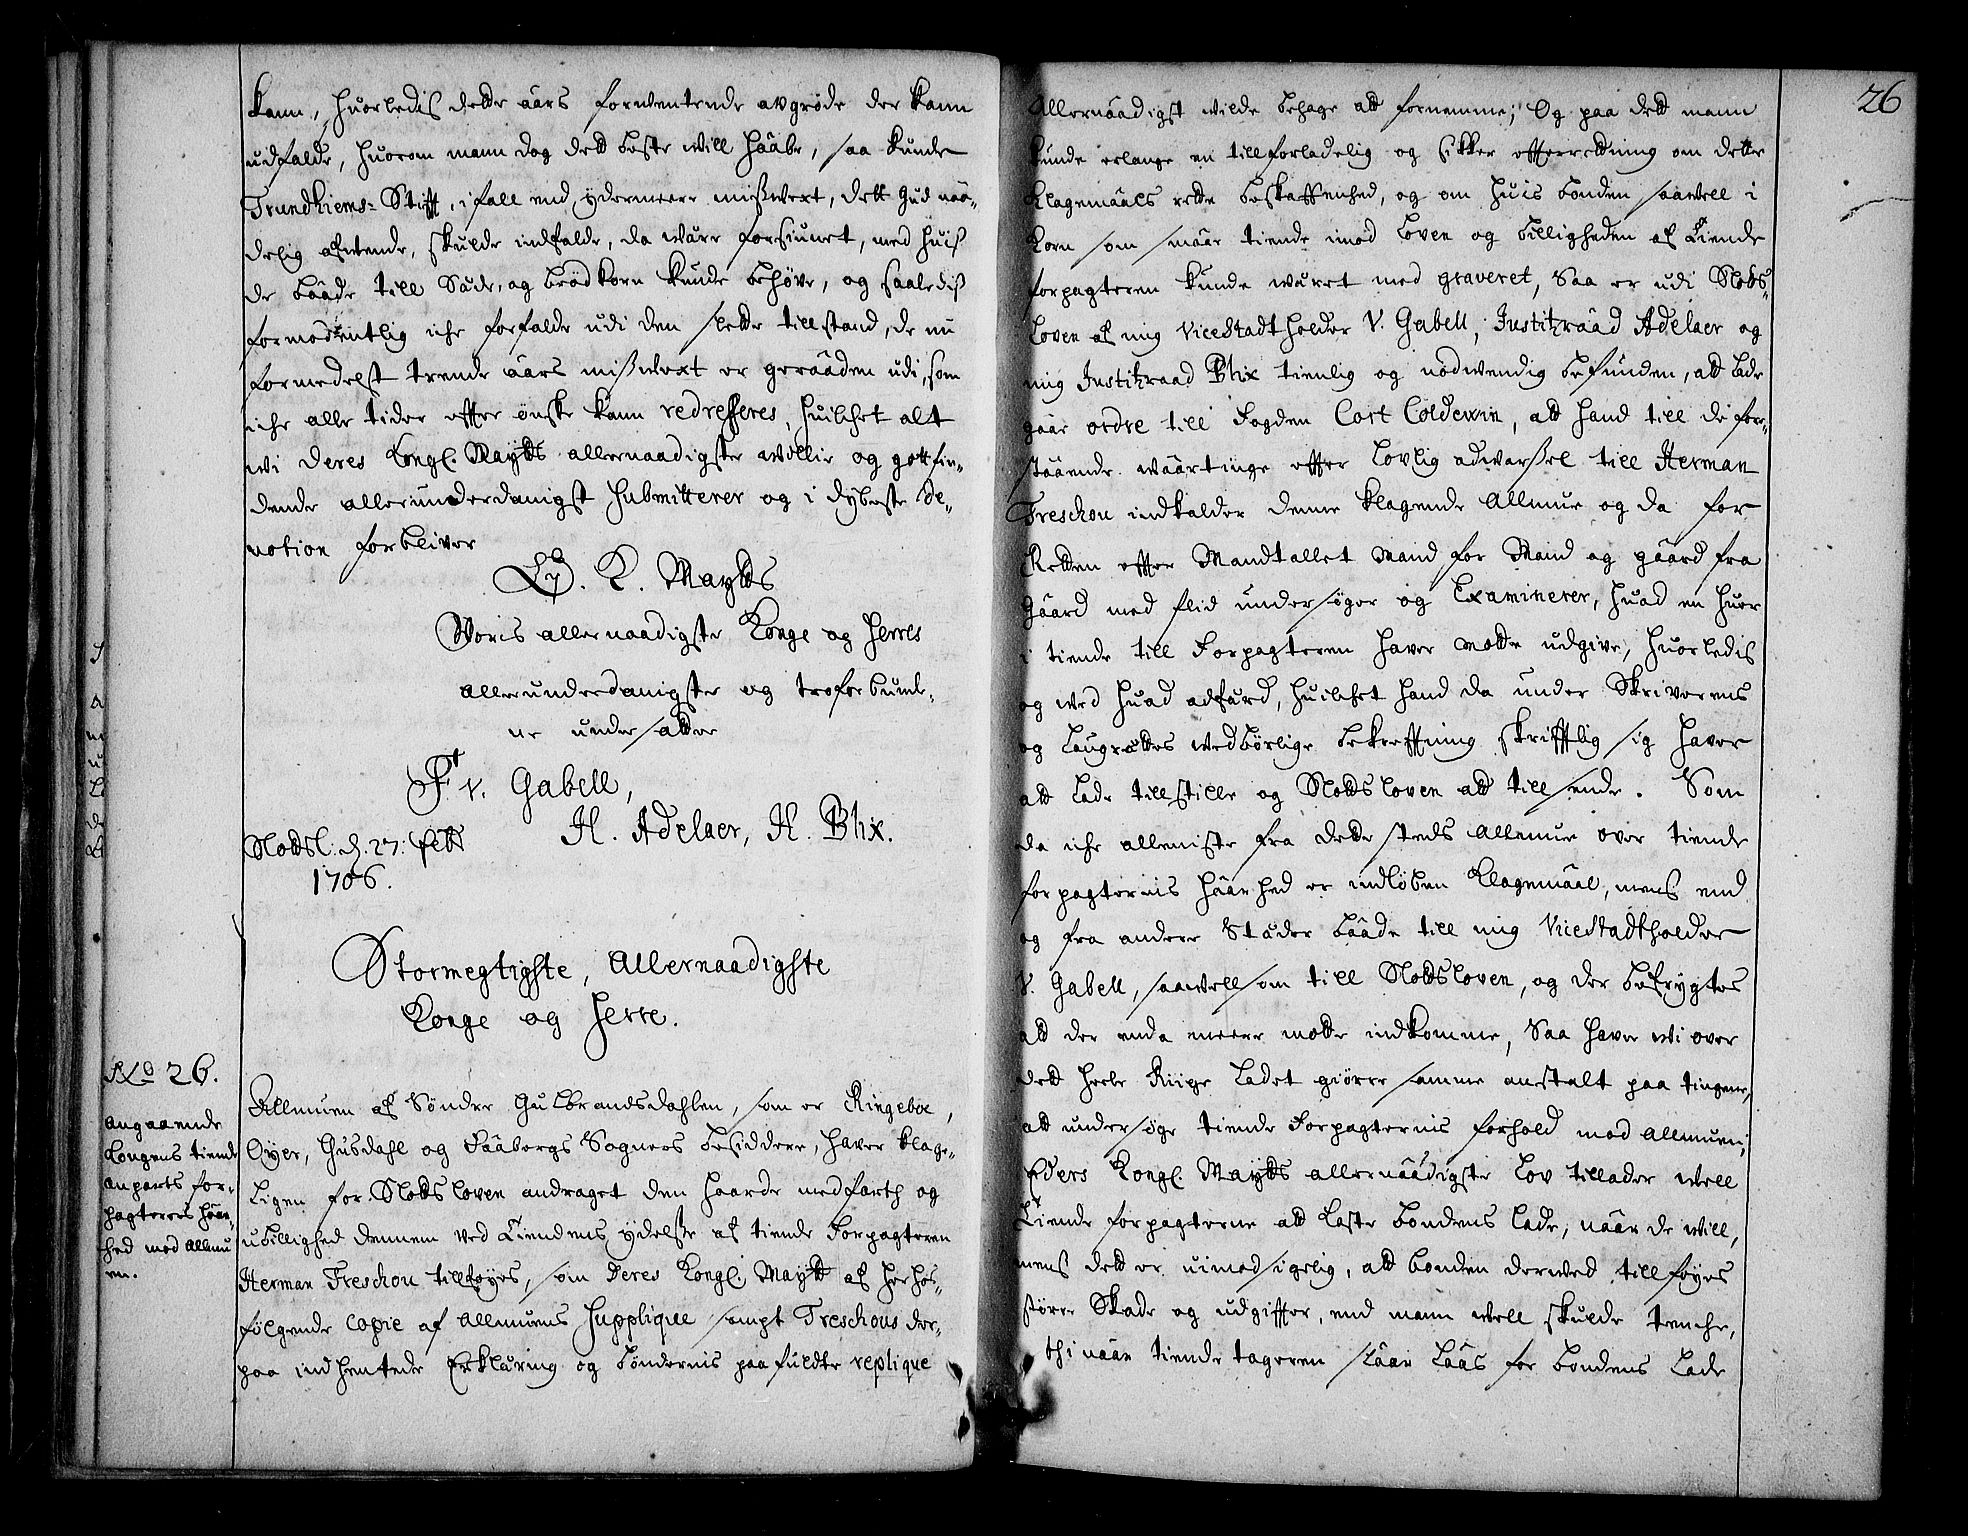 kann, huorledis dette aars forventende avgrøde der kann
udfalde, huorom mann dog dett beste will haabe, saa kunde
Trundhiems- Stifft, i fall end ydermeere mißvext, dett Gud naa-
delig afvende, skulde indfalde, da være forsiunet, med huiß
de baade till Sæde, og brødkorn kunde behøve, og saalediß
formodentlig iche forfalde udi den slette tillstand, de nu
formedelst trende aars mißvext er geraaden udi, som
iche alle tider effter ønske kann redresseres, huilchet alt
wi Deres Kongl. Maytts allernaadigste willie og gottfin-
dende allerunderdanigst submitterer og i dybeste de-
votion forbliver
Ey. K. Maytts
Woris allernaadigste Konge og Herres
allerunderdanigste og troforbund-
ne undersatter
F. v. Gabell,
H. Adelaer, H. Blix.
Slottsl. d. 27:
1706.
Stormegtigste, Allernaadigste
Konge og Herre.
No 26.
angaaende
Kongens tiende
anparts for-
pagteres haar-
hed mod Allmu
en.
Allmuen af Søndre Gulbrandsdahlen, som er Ringeboe,
Øyer, Gusdahl og Faabergs Sogners besiddere, haver klage-
ligen for Slottsloven andraget den haarde medfarth og
ubillighed dennem ved Tiendens ydelße af tiende Forpagteren
Herman Treschou tillføyes, som Deres Kongl. Maytt af her hos-
følgende copie af Allmuens Supplique sampt Treschous der-
paa indhentede Erklæring og bøndernis paafuldte replique
26
Allernaadigst wilde behage att fornemme; Og paa dett mann
kunde erlange en tillforladelig og sikker effterretning om dette
Klagemaals rette beskaffenhed, og om huis bonden saavell i
Korn som smaae tiende imod Loven og billigheden af Tiende
forpagteren kunde været med graveret, Saa er udi Slotts-
Loven af mig Vicestadtholder V. Gabell, Justitzraad Adelaer og
mig Justitzraad Blix tienlig og nødwendig befunden, att lade
gaae ordre till Fogden Cort Coldewin, att hand till de fore-
staaende waartinge effter Lovlig adwarßel till Herman
Treschou indkalder denne klagende Allmue og da for
Retten effter Mandtallet Mand for Mand og gaard fra
Gaard med flid undersøger og Examinerer, huad en huer
i tiende till Forpagteren haver motte udgive, huorledis
og wed huad adfærd, huilchet hand da under Skriverens
og Laugrettes wedbørlige bekrefftning skrifftlig sig haver
att lade tillstille og Slottsloven att tillsende. Som
da iche alleniste fra dette steds Allmue over tiende
forpagternis haarhed er indløben Klagemaal, mens end
og fra andere Stæder baade till mig Vicestadtholder
V. Gabell, saavell som till Slottsloven, og der befrygtes
att der enda meere motte indkomme, Saa haver wi over
dett heele Riige ladet giørre samme anstalt paa tingene,
att undersøge tiende Forpagternis forhold mod Allmuen;
Eders Kongl. Maytts allernaadigste Lov tillader well
Tiende forpagterne att laste bondens lade, naar de will,
mens dett er uimodsigelig, att bonden derwed tillføyes
større Skade og udgiffter, end mann well skulde tenche,
thi naar tiende tageren slaar Laas for bondens Lade